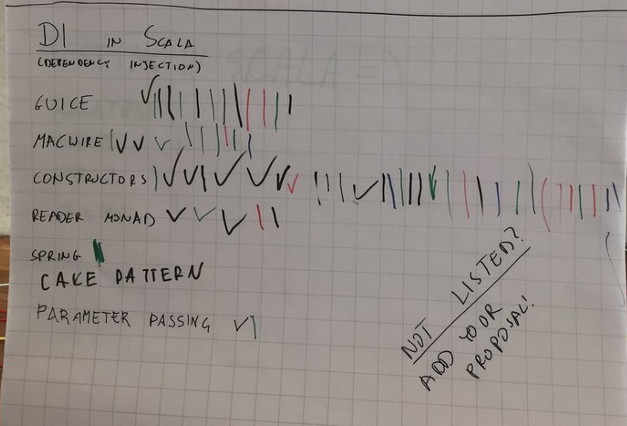 DI IN SCALA
(DEPENDENCY INJECTION)
GUICE
MACWIRE
CONSTRUCTORS
READER MONAD
SPRING
CAKE PATTERN
PARAMETER PASSING
NOT LISTED?
ADD YOUR
PROPOSAL!